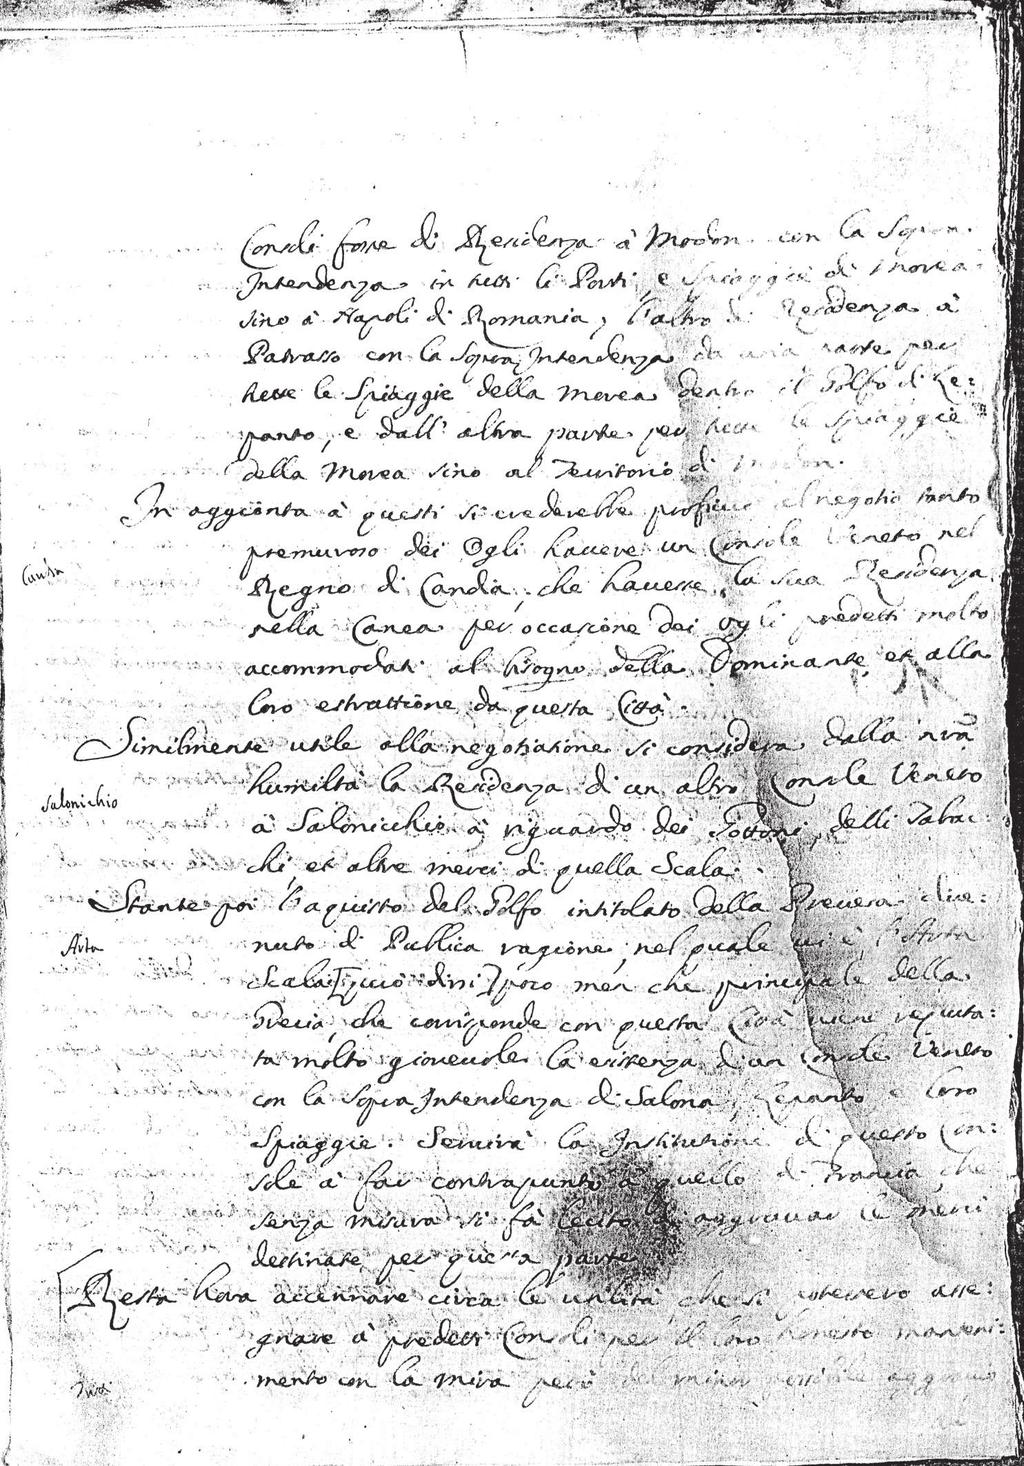 Consoli fosse di Residenza à Modon con la Sopra
Intendenza in tutti li Porti, e Spiaggie di Morea
sino à Napoli di Romania, l'altro di Residenza à
Patrasso con la Sopra Intendenza da una parte per
tutte le Spiaggie della Morea dentro il Golfo di Le:
panto, e dall' altra parte per tutte le Spiaggie
della Morea sino al Territorio di Modon.
In aggionta à questi si crederebbe proficuo al negotio tanto
premuroso dei Ogli havere un Console Veneto nel
Candia
Regno di Candia, che havesse la sua Residenza
nella Canea per occasione dei ogli predetti molto
accommodati al bisogno della Dominante, et alla
loro estrattione da questa Città.
Similmente utile alla negotiatione si considera dalla nrã
humiltà la Residenza di un altro Console Veneto
Salonichio
à Salonicchio à riguardo dei Gottoni, delli Tabac:
chi, et altre merci di quella Scala.
Stante poi l'aquisto del Golfo intitolato della Prevesa dive:
Arta
nuto di Publica ragione, nel quale vi è l'Arta
Scala [può dirsi] poco men che principale della
Grecia, che corrisponde con questa Città viene reputa:
ta molto giovevole la esistenza d'un Console Veneto
con la Sopra Intendenza di Salona, Lepanto e loro
Spiaggie. Servirà la Institutione di questo Con:
sole à far contrapunto à quello di Francia, che
senza misura si fà lecito di aggravar le merci
destinate per questa parte.
Resta hora accennare circa le utilità, che si potrebbero asse:
gnare à predetti Consoli per il loro honesto manteni:
mento con la mira però del minor possibile aggravio